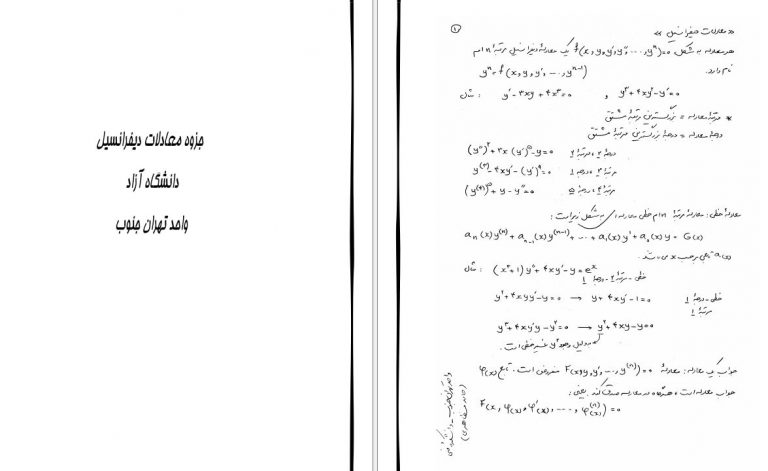 جزوه معادلات دیفرانسیل
دانشگاه آزاد
واحد تهران جنوب
۱
« معادلات دیفرانسیل »
هر معادله به شکل f(x, y, y′, y″, …, yⁿ)=0 یک معادله دیفرانسیل مرتبهٔ n ام
نام دارد.
yⁿ = f(x, y, y′, …, yⁿ⁻¹)
مثال : y′ - ۳xy + ۴x² = 0 , y² + ۴xy² - y′ = 0
* مرتبهٔ معادله = بزرگترین مرتبهٔ مشتق
درجهٔ معادله = درجهٔ بزرگترین مرتبهٔ مشتق
(y″)² + ۳x (y′)⁵ - y = 0 درجهٔ ۲ ، مرتبهٔ ۲
y⁽³⁾ - ۴xy′ - (y′)⁹ = 0 مرتبهٔ ۳ ، درجهٔ ۱
(y⁽⁴⁾)⁵ + y - y″ = 0 مرتبهٔ ۴ ، درجهٔ ۵
معادلهٔ خطی : معادلهٔ مرتبهٔ n ام خطی معادله‌ای به شکل زیر است :
aₙ(x) y⁽ⁿ⁾ + aₙ₋₁(x) y⁽ⁿ⁻¹⁾ + … + a₁(x) y′ + a₀(x) y = G(x)
a(x) تابعی برحسب x می‌باشد.
مثال : (x² + 1) y″ + ۴xy′ - y = eˣ
خطی - مرتبهٔ ۲ - درجهٔ ۱
y² + ۴xyy′ - y = 0 → y + ۴xy′ - 1 = 0 خطی - درجهٔ ۱
مرتبهٔ ۱
y³ + ۴xy′y - y² = 0 → y² + ۴xy′ - y = 0
که بدلیل وجود y² غیرخطی است.
جواب یک معادله : معادلهٔ F(x, y, y′, …, y⁽ⁿ⁾) = 0 مفروض است. تابع φ(x)
جواب معادله است ، هرگاه در معادله صدق کند. یعنی :
F(x, φ(x), φ′(x), …, φ⁽ⁿ⁾(x)) = 0